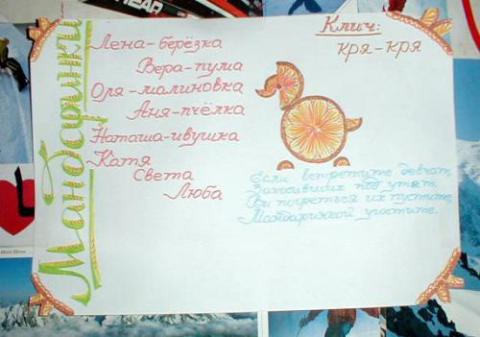 Мандаринки
Лена-берёзка
Вера-пума
Оля-малиновка
Аня-пчёлка
Наташа-ивушка
Катя
Света
Люба
Клич:
кря-кря
Если встретите девчат,
Закосивших под утят,
Вы погреться их пустите,
Мандаринкой угостите.